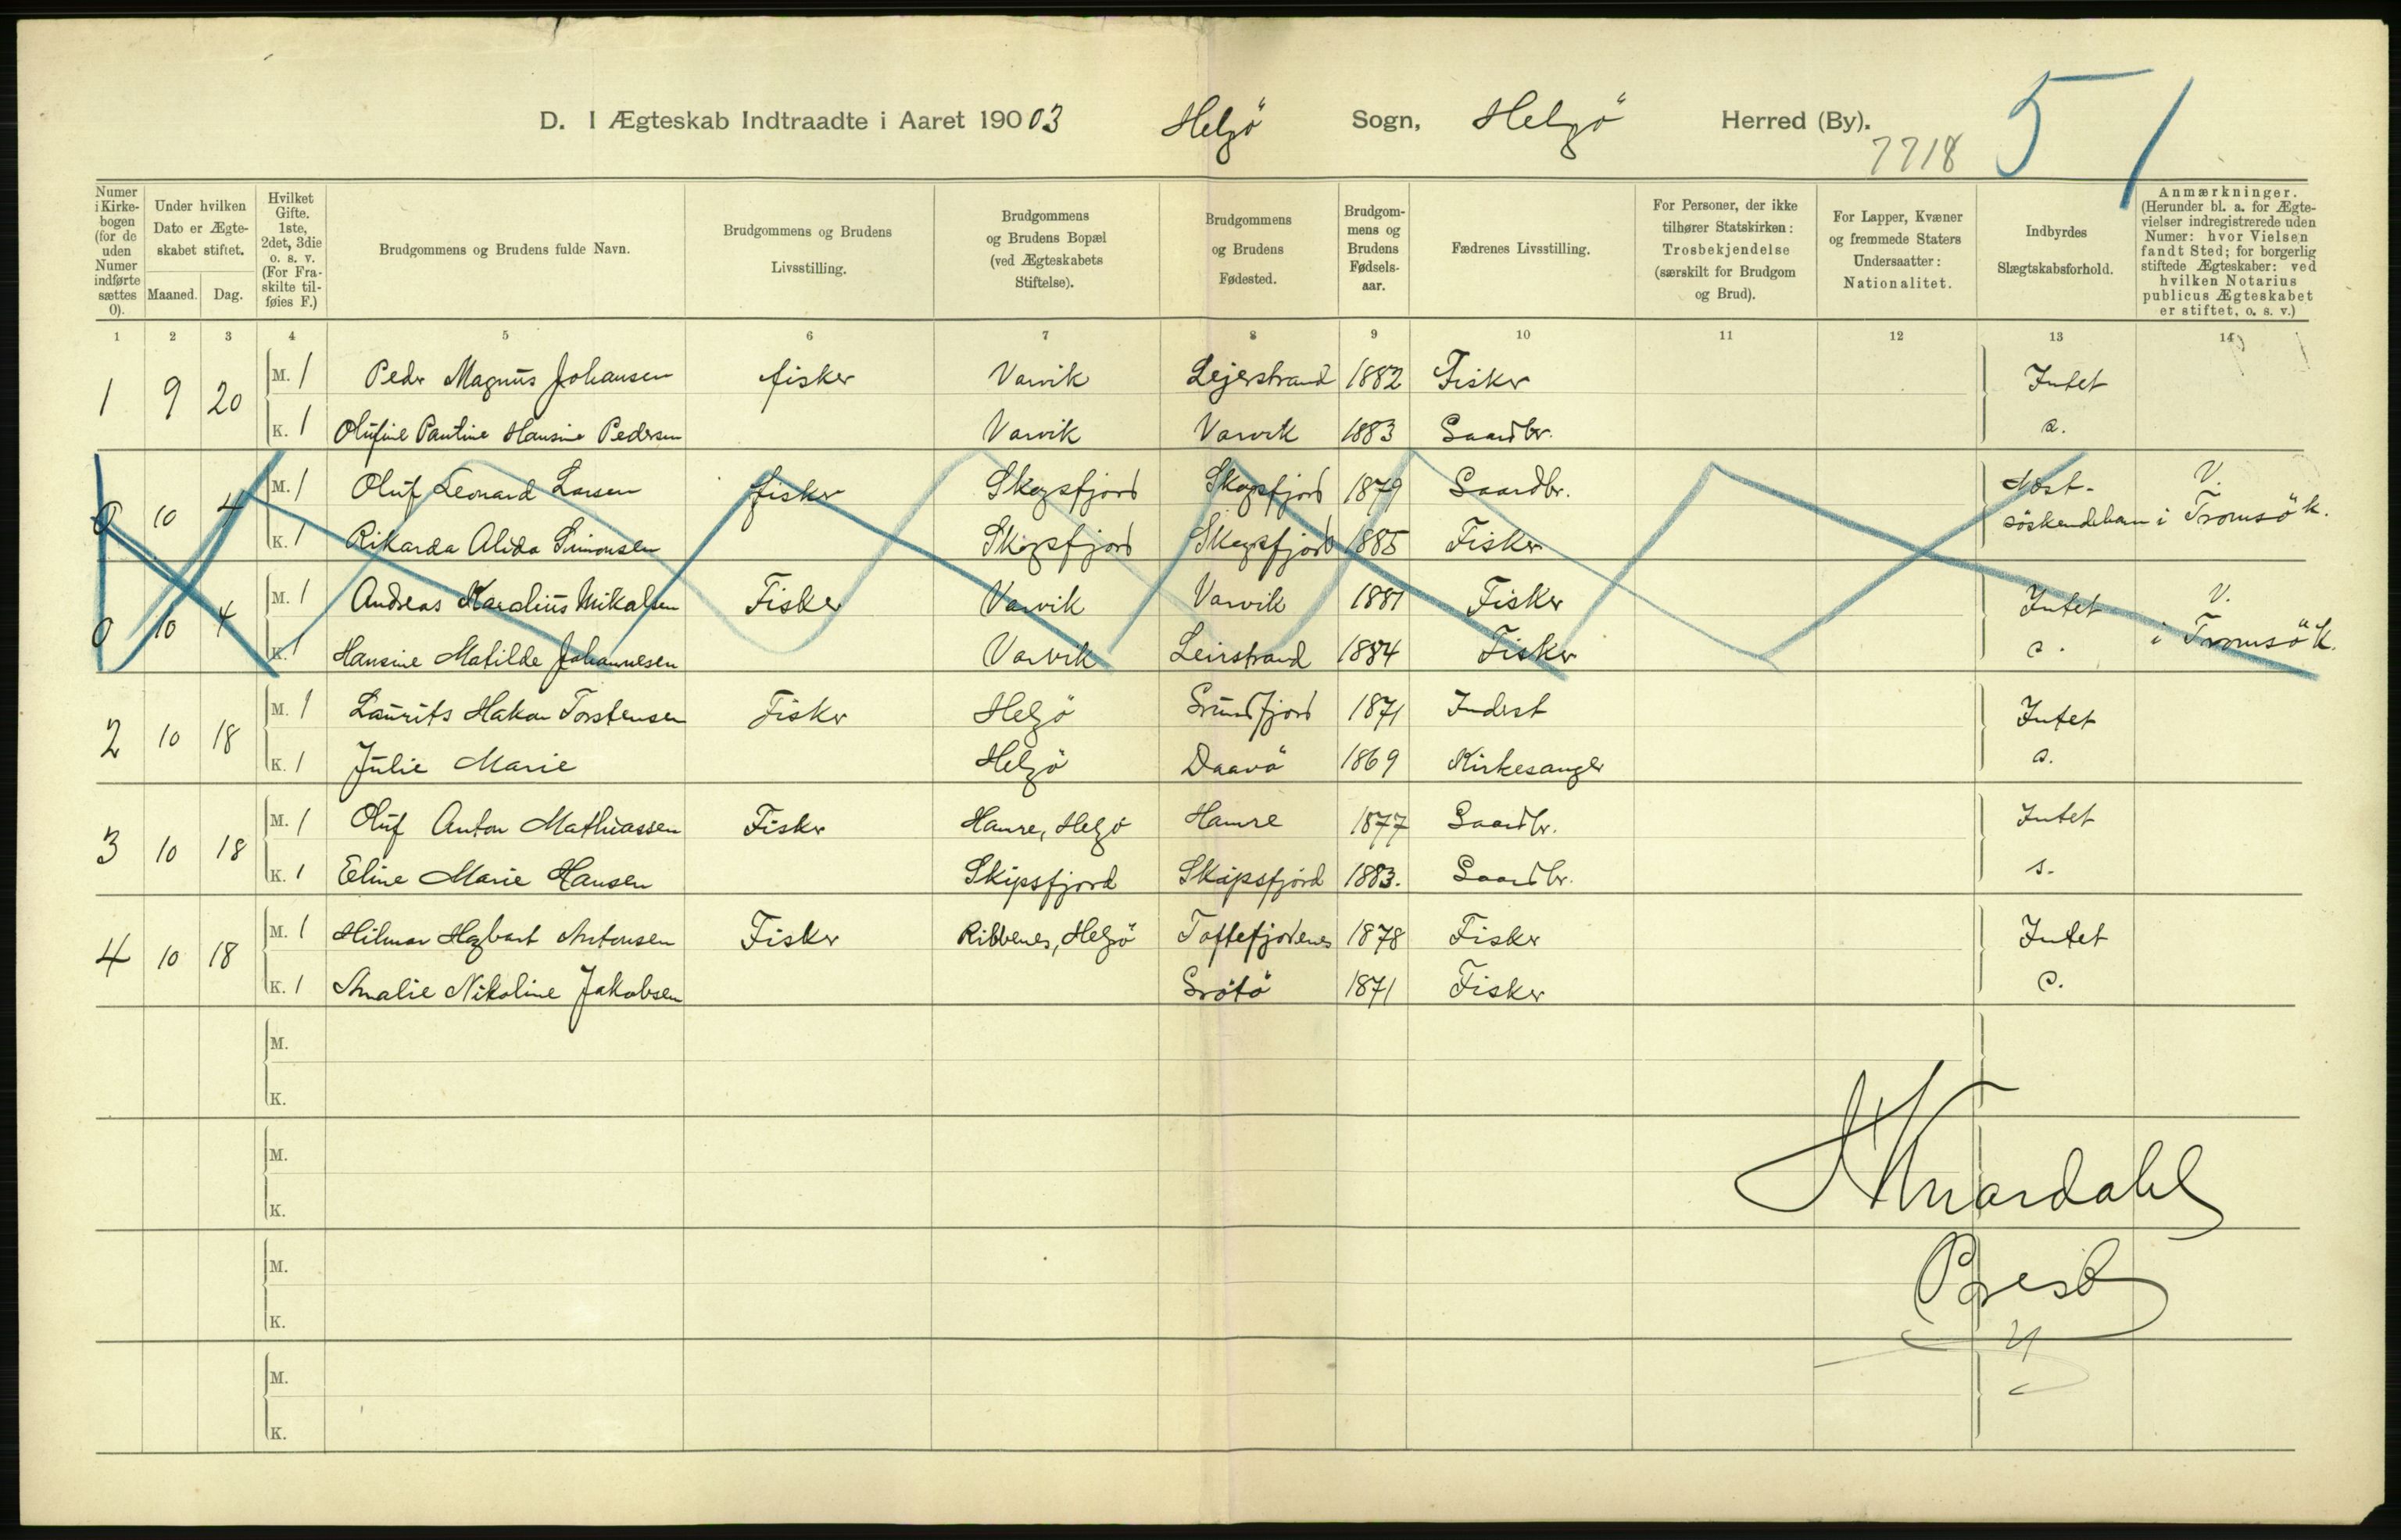 D. I Ægteskab Indtraadte i Aaret 19003 Helgö Sogn, Helgö Herred (By). 51
7718
Numer i Kirkebogen (for de uden Numer indførte sættes 0).
Under hvilken Dato er Ægteskabet stiftet.
Maaned. Dag.
Hvilket Gifte. 1ste, 2det, 3die o. s. v. (For Fraskilte tilføies F.)
Brudgommens og Brudens fulde Navn.
Brudgommens og Brudens Livsstilling.
Brudgommens og Brudens Bopæl (ved Ægteskabets Stiftelse).
Brudgommens og Brudens Fødested.
Brudgommens og Brudens Fødselsaar.
Fædrenes Livsstilling.
For Personer, der ikke tilhører Statskirken: Trosbekjendelse (særskilt for Brudgom og Brud).
For Lapper, Kvæner og fremmede Staters Undersaatter: Nationalitet.
Indbyrdes Slægtskabsforhold.
Anmærkninger. (Herunder bl. a. for Ægtevielser indregistrerede uden Numer: hvor Vielsen fandt Sted; for borgerlig stiftede Ægteskaber: ved hvilken Notarius publicus Ægteskabet er stiftet, o. s. v.)
1 2 3 4 5 6 7 8 9 10 11 12 13 14
1 9 20 M. 1 Peder Magnus Johansen fisker Varvik Lejerstrand 1882 Fisker Intet
K. 1 Olufine Pauline Hansine Pedersen Varvik Varvik 1883 Gaardbr. a.
0 10 4 M. 1 Oluf Leonard Larsen fisker Skogsfjord Skogsfjord 1879 Gaardbr. Næst- V.
K. 1 Rikarda Alida Simonsen Skogsfjord Skogsfjord 1885 Fisker söskendebarn i Tromsö k.
0 10 4 M. 1 Andreas Karolius Mikalsen Fisker Varvik Varvik 1881 Fisker Intet V.
K. 1 Hansine Matilde Johannesen Varvik Leirstrand 1884 Fisker a. i Tromsö k.
2 10 18 M. 1 Laurits Hakon Torstensen Fisker Helgö Grundfjord 1871 Inderst Intet
K. 1 Julie Marie Helgö Daavö 1869 Kirkesanger a.
3 10 18 M. 1 Oluf Anton Mathiassen Fisker Hamre, Helgö Hamre 1877 Gaardbr. Intet
K. 1 Eline Marie Hansen Skipsfjord Skipsfjord 1883. Gaardbr. s.
4 10 18 M. 1 Hilmar Hagbart Antonsen Fisker Ribbenes, Helgö Toftefjordenes 1878 Fisker Intet
K. 1 Amalie Nikoline Jakobsen Grötö 1871 Fisker a.
M.
K.
M.
K.
M.
K.
M.
K.